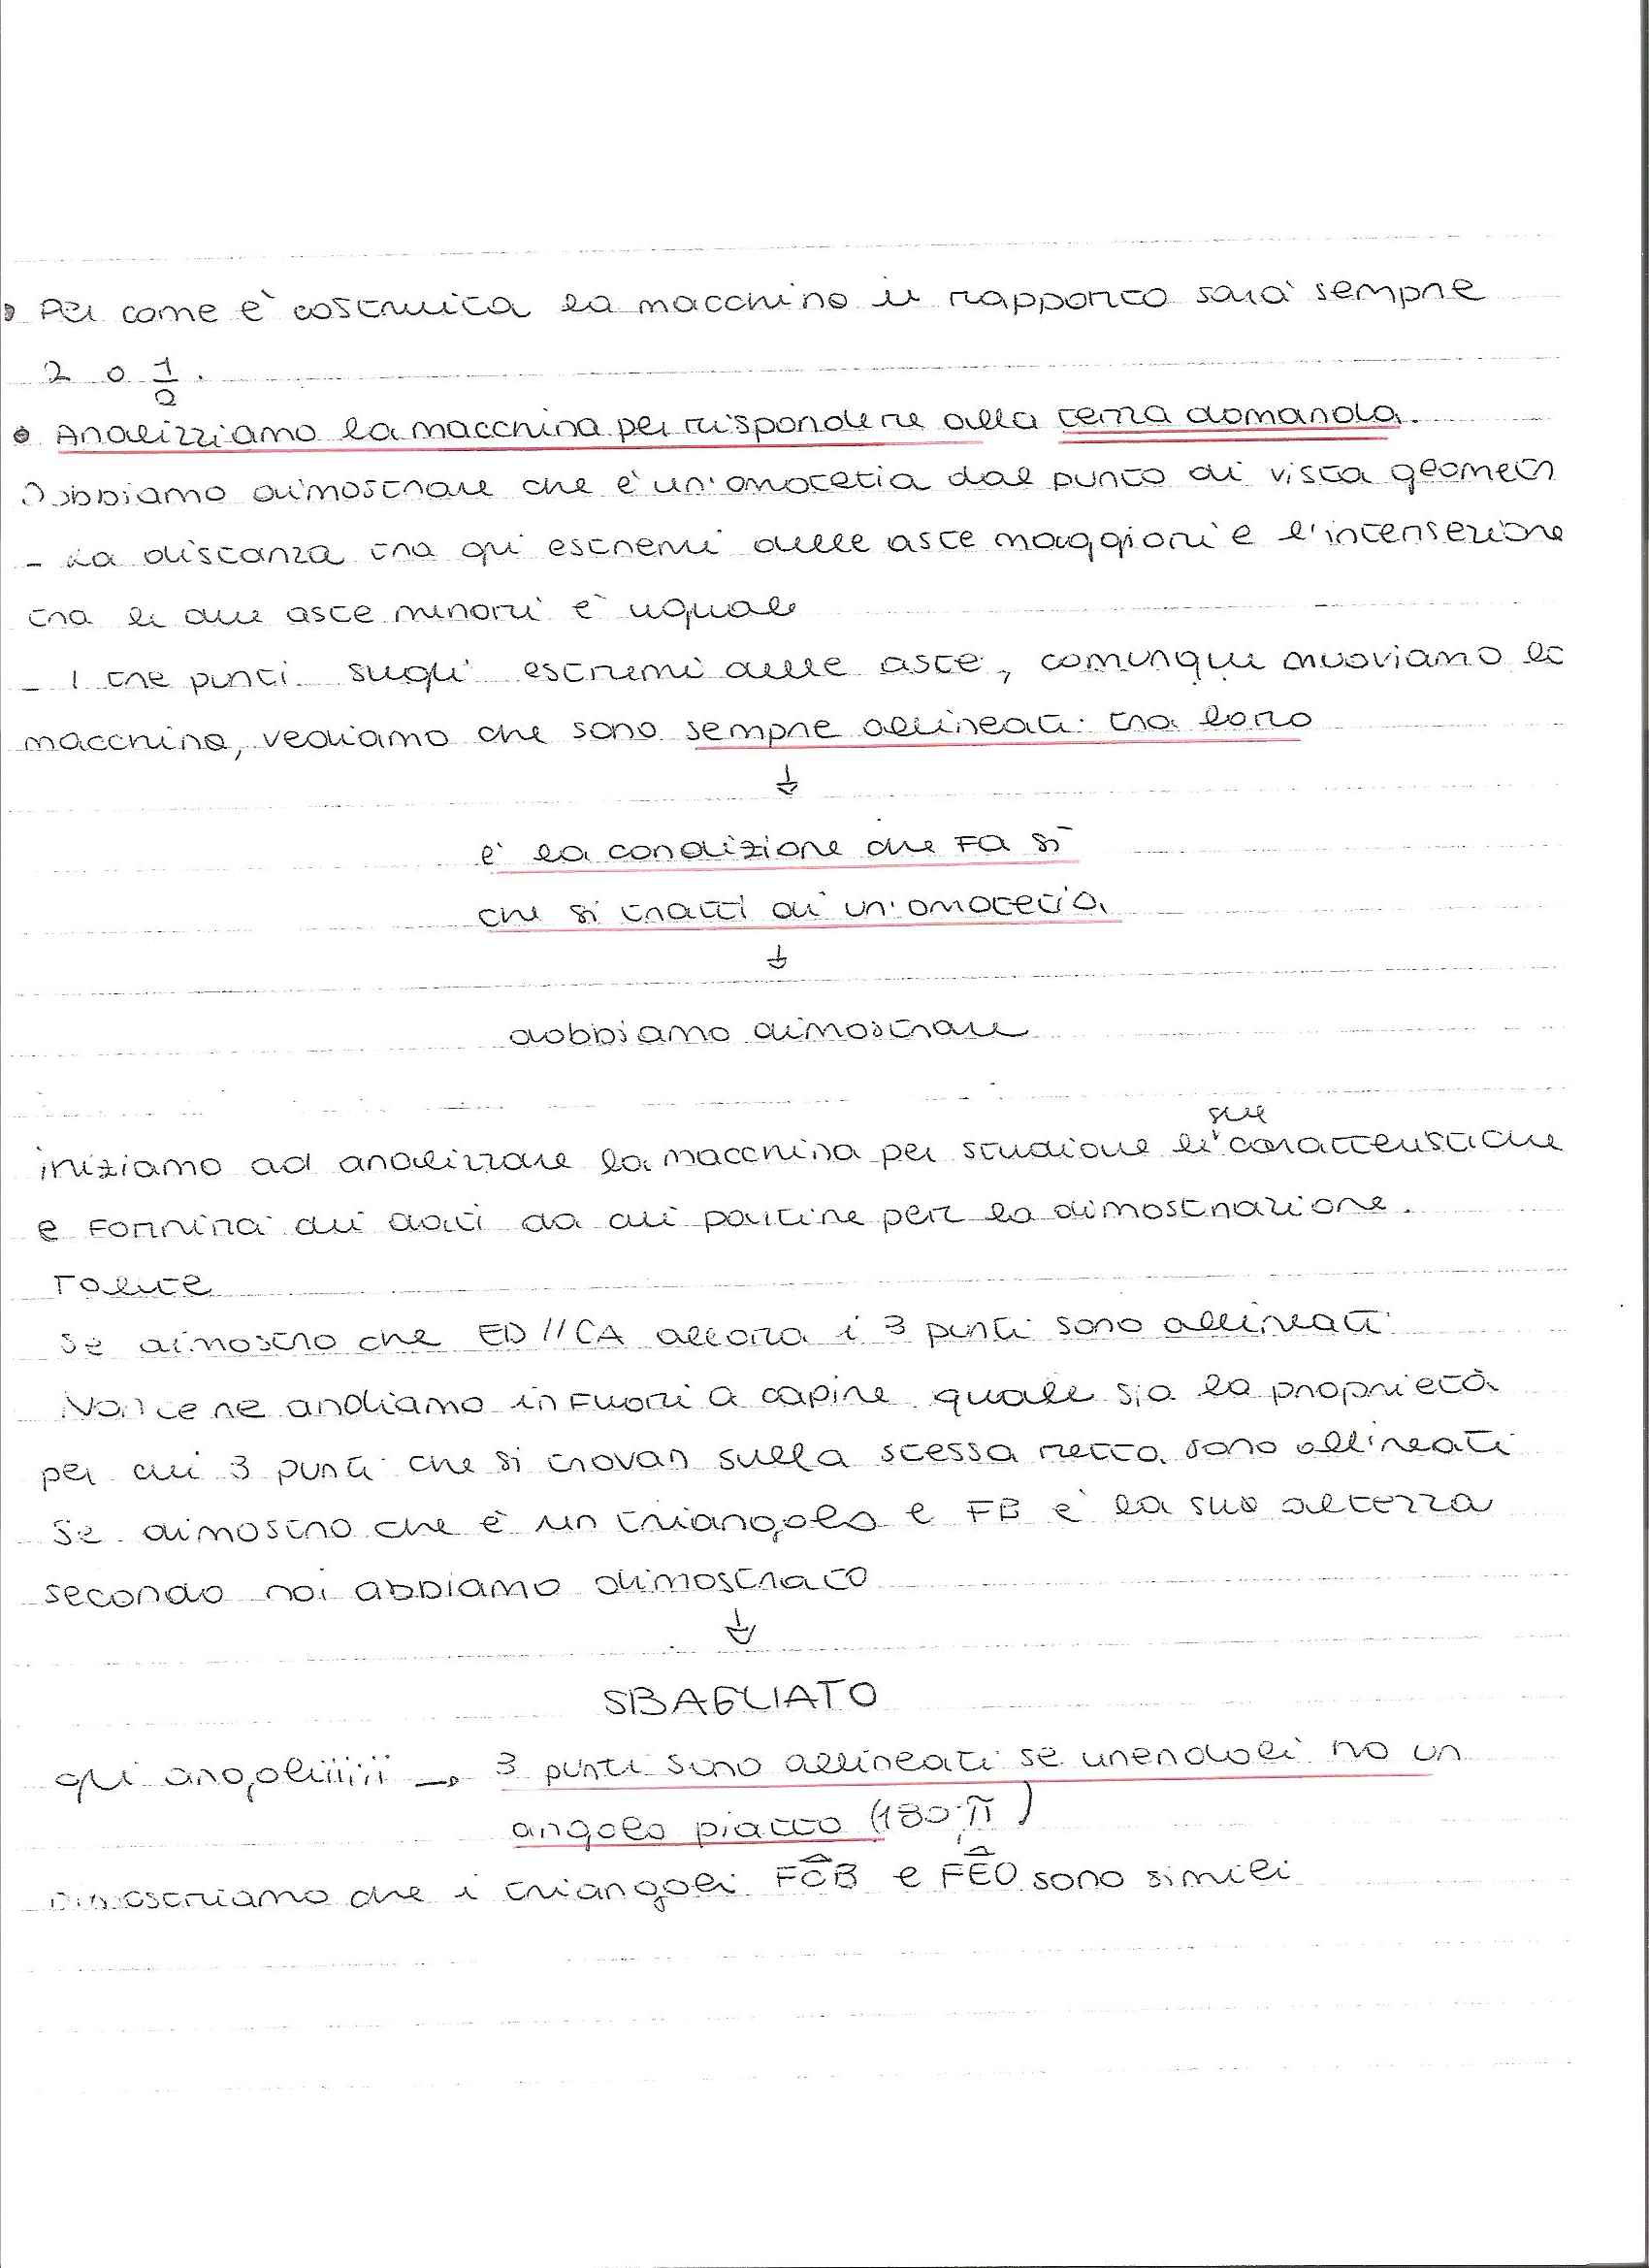 • Per come è costruita la macchina il rapporto sarà sempre
2 o 1/2.
• Analizziamo la macchina per rispondere alla terza domanda.
Dobbiamo dimostrare che è un'omotetia dal punto di vista geometr
- La distanza tra gli estremi delle aste maggiori e l'intersezione
tra le due aste minori è uguale
- I tre punti sugli estremi delle aste, comunque muoviamo la
macchina, vediamo che sono sempre allineati tra loro
↓
è la condizione che fa sì
che si tratti di un'omotetia
↓
dobbiamo dimostrare
sue
iniziamo ad analizzare la macchina per studiare le caratteristiche
e fornirà dei dati da cui partire per la dimostrazione.
Talete
Se dimostro che ED // CA allora i 3 punti sono allineati
Non ce ne andiamo in fuori a capire quale sia la proprietà
per cui 3 punti che si trovan sulla stessa retta sono allineati
Se dimostro che è un triangolo e FB è la sua altezza
secondo noi abbiamo dimostrato
↓
SBAGLIATO
gli angoliiiiii → 3 punti sono allineati se unendoli ho un
angolo piatto (180 π)
Dimostriamo che i triangoli FĈB e FÊO sono simili